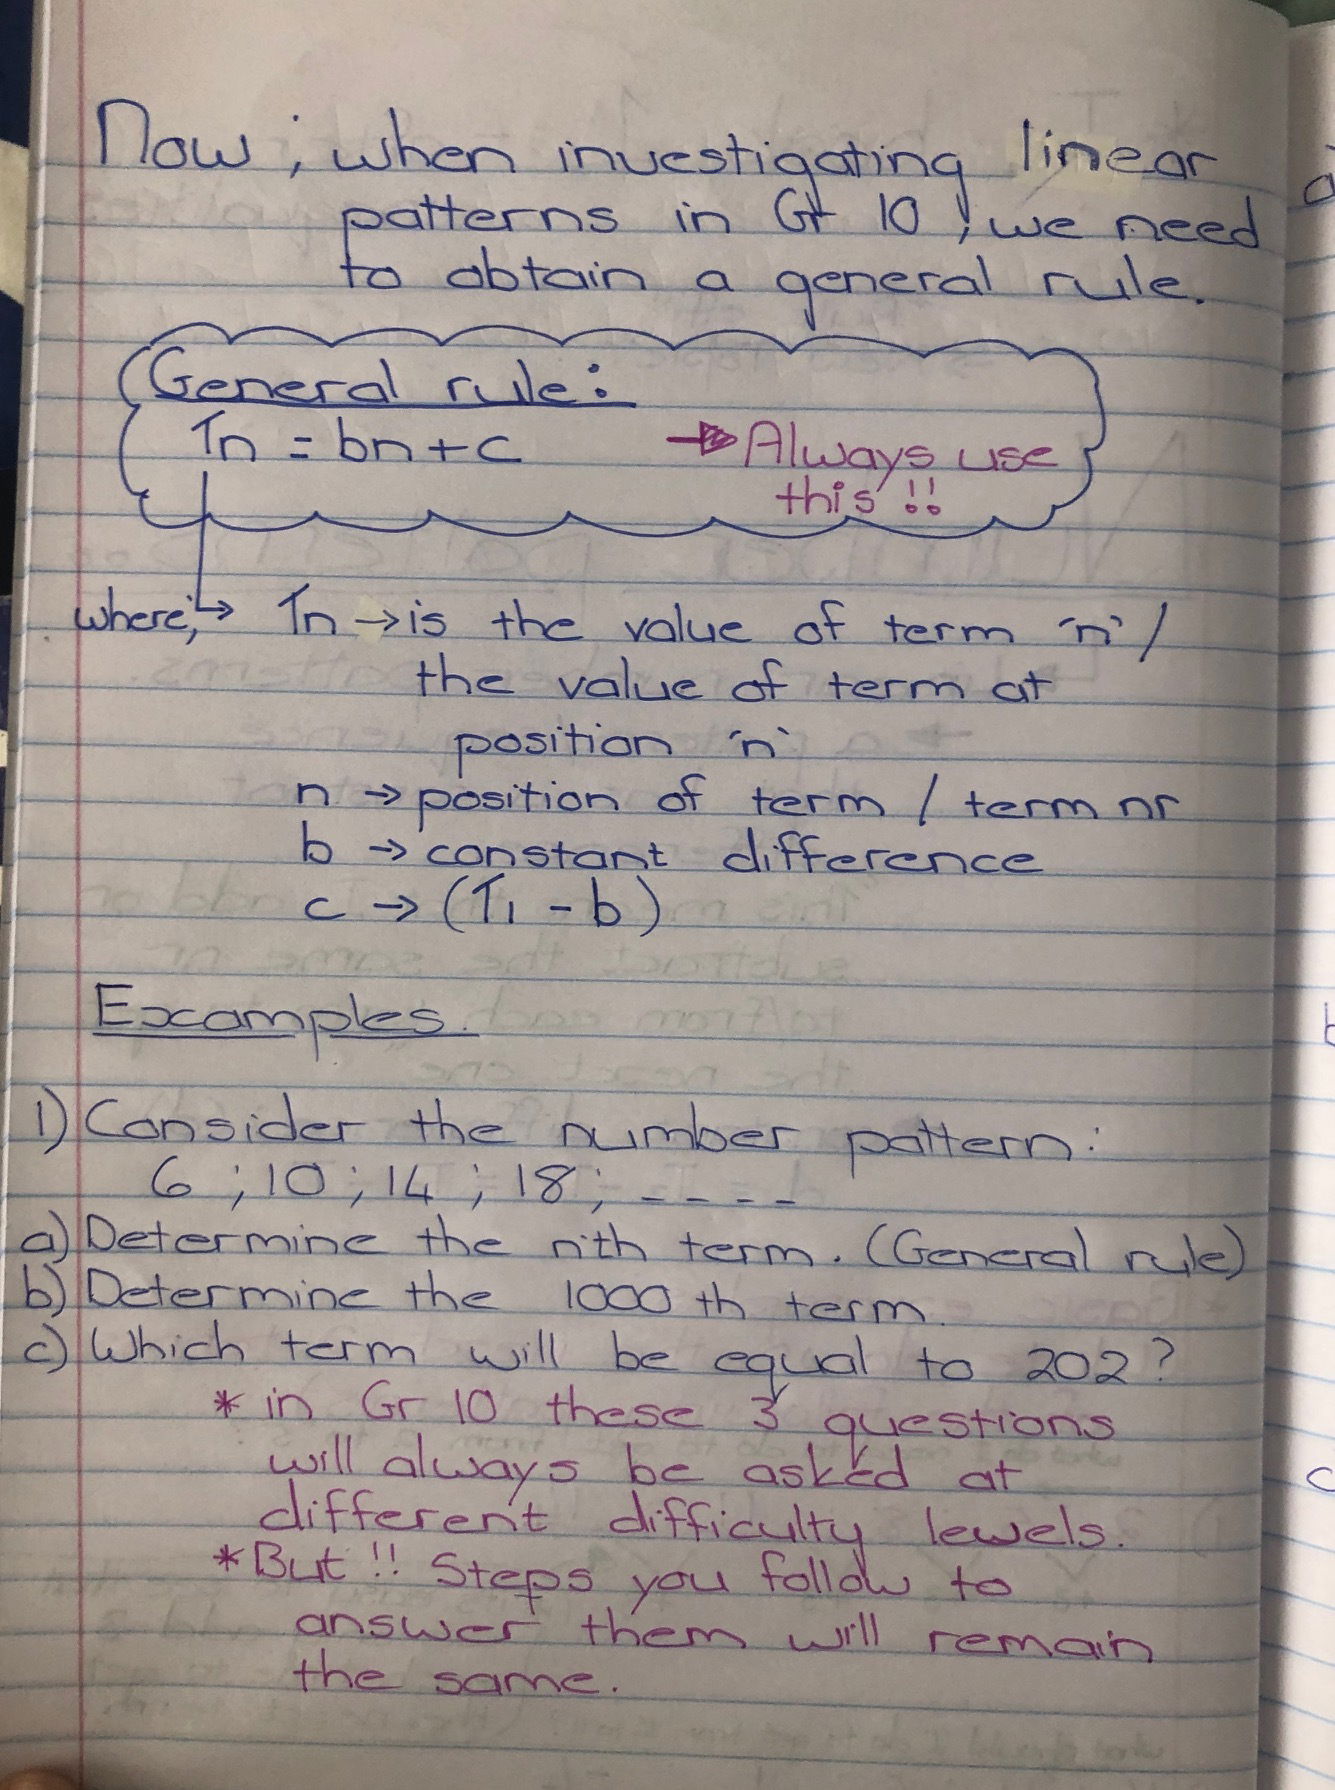 Now ; when investigating linear
patterns in Gr 10 ; we need
to obtain a general rule.
General rule:
Tn = bn + c → Always use
this !!
where; → Tn → is the value of term 'n' /
the value of term at
position 'n'
n → position of term / term nr
b → constant difference
c → (T1 - b)
Examples.
1) Consider the number pattern:
6 ; 10 ; 14 ; 18 ; - - - -
a) Determine the n'th term. (General rule)
b) Determine the 1000 th term.
c) Which term will be equal to 202?
* in Gr 10 these 3 questions
will always be asked at
different difficulty lewels.
* But !! Steps you follow to
answer them will remain
the same.